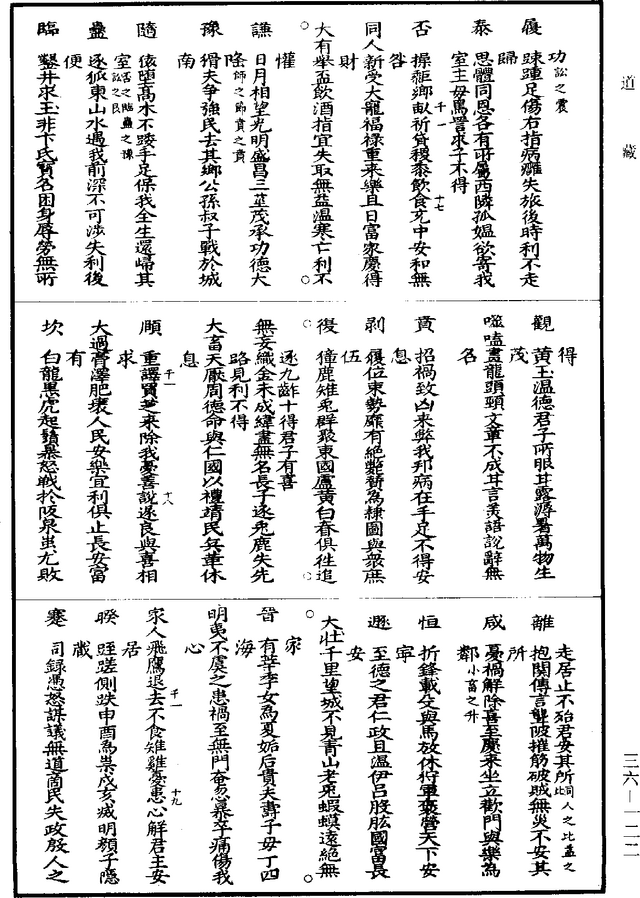 道藏
功訟之震
履 踈踵足傷右指病癰失旅後時利不走
歸
泰 思體同恩各有所屬西隣孤媼欲寄我
室主母罵詈求子不得
否 操秬鄉畝祈貸稷黍飲食充中安和無
咎
同人 新受大寵福祿重來樂且日富家慶得
財
大有 舉盃飲酒指宜失取無益溫寒亡利不
謙 日月相望光明盛昌三莖茂承功德大
隆師之節賁之賁
豫 搰夫爭強民去其鄉公孫叔子戰於城
南
隨 倚墮高木不踒手足保我全生還歸其
室
蠱 逐狐東山水遏我前深不可涉失利後
便
臨 鑿井求玉非卞氏寶名困身辱勞無所
得
觀 黃玉溫德君子所服甘露溽暑萬物生
茂
噬嗑 畫龍頭頸文章不成甘言美語說辭無
名
賁 招禍致凶來弊我邦病在手足不得安
息
剝 履位乘勢靡有絕斃替為隸圉與眾庶
伍
復 獐鹿雉兔群聚東國盧黃白脊俱往追
逐九齚十得君子有喜
無妄 織金未成緯畫無名長子逐兔鹿失先
路見利不得
大畜 天厭周德命與仁國以禮靖民兵革休
息
頤 重譯貢芝來除我憂善說遂良與喜相
求
大過 膏澤肥衮人民安樂宜利俱止長安富
有
坎 白龍黑虎起鬐暴怒戰於阪泉蚩尤敗
走居止不殆君安其所同人之比蠱之比
離 抱關傳言聾跛摧筋破賊無災不安其
所
咸 憂禍解除喜至慶來坐立歡門與樂為
鄰小畜之升
恒 折鋒載殳輿馬放休狩軍褒營天下安
寧
遯 至德之君仁政且溫伊呂股肱國富民
安
大壯 千里望城不見青山老兔蝦蟆遠絕無
家
晉 有莘季女為夏妬后貴夫壽子母丁四
海
明夷 不虞之患禍至無門奄忽暴卒痛傷我
心
家人 飛鷹退去不食雉雞憂患心解君主安
居
睽 踁蹉側跌申酉為祟戌亥滅明顏子隱
藏
蹇 司錄憑怒謀議無道商民失政殷人之
三六—一二二